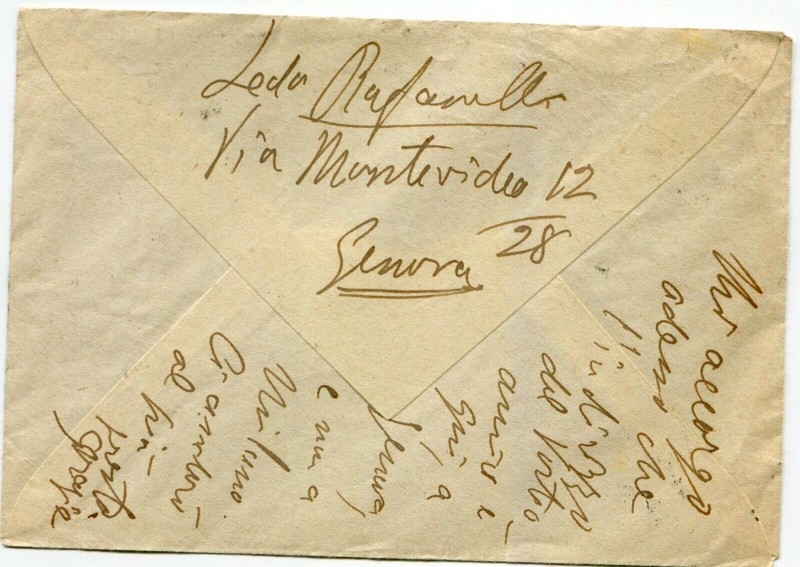 Leda Rafanelli
Via Montevideo 12
28
Genova
Mi accorgo
adesso che
l'
indirizzo
del Vostro
amico è
a
Genova,
e non a
Milano
Ci andrò
al più
presto
grazie